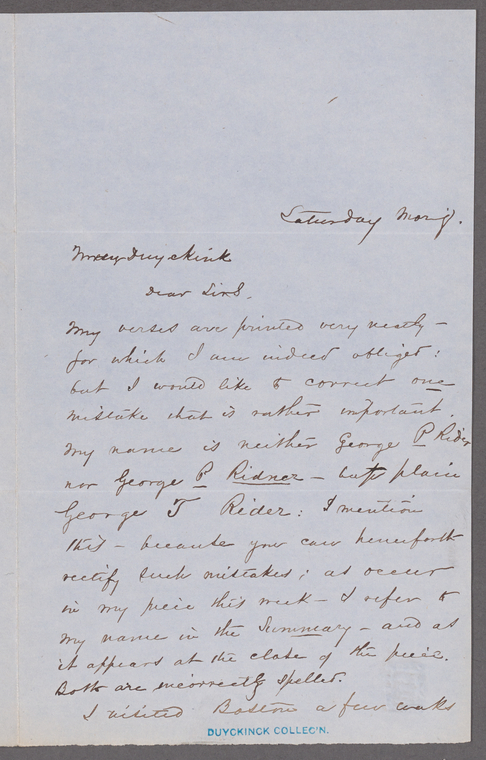 Saturday Morng.
Duyckink
Dear Sirs.
My verses are printed very neatly –
for which I am indeed obliged:
but I would like to correct one
mistake that is rather important.
My name is neither George P Rider
nor George P Ridner – but plain
George T Rider: I mention
this – because you can henceforth
rectify such mistakes; as occur
in my piece this week – I refer to
my name in the Summary – and as
it appears at the close of the piece.
Both are incorrectly spelled.
I visited Boston a few weeks
DUYCKINCK COLLEC'N.